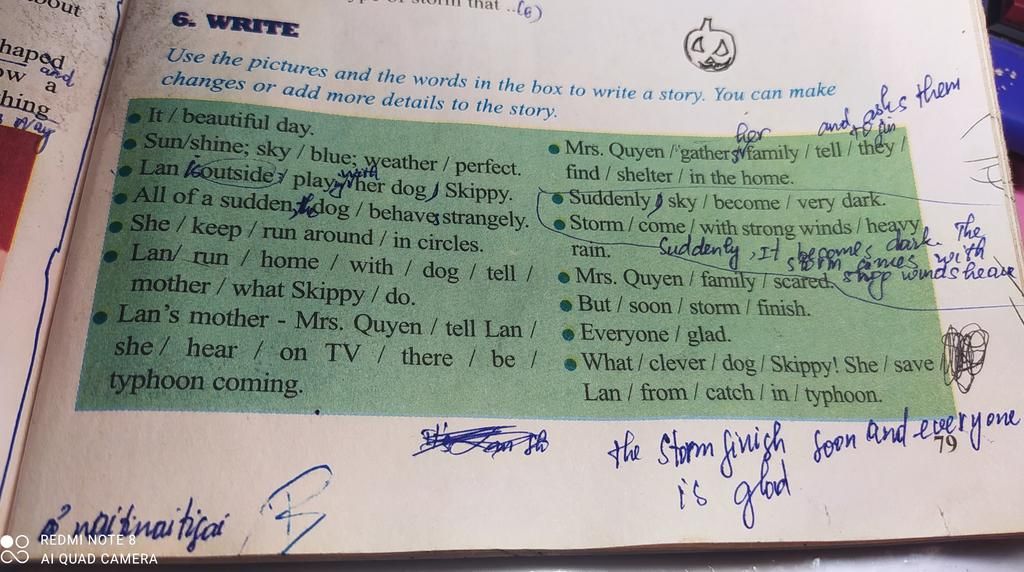 bout
haped
and
ow a
thing
storm that ..(6)
6. WRITE
Use the pictures and the words in the box to write a story. You can make
changes or add more details to the story.
• It / beautiful day.
• Sun/shine; sky / blue; weather / perfect.
• Lan / outside / play / her dog / Skippy.
with
• All of a sudden, dog / behaves strangely.
• She / keep / run around / in circles.
• Lan/ run / home / with / dog / tell /
mother / what Skippy / do.
• Lan's mother - Mrs. Quyen / tell Lan /
she / hear / on TV / there / be /
typhoon coming.
her and asks them
to fin
• Mrs. Quyen / gather / family / tell / they /
find / shelter / in the home.
• Suddenly / sky / become / very dark.
• Storm / come / with strong winds / heavy
rain.
Suddenly, It becomes dark. The
storm comes with
winds heav
• Mrs. Quyen / family / scared.
• But / soon / storm / finish.
• Everyone / glad.
• What / clever / dog / Skippy! She / save /
Lan / from / catch / in / typhoon.
the storm finish soon and everyone
is glad
79
REDMI NOTE 8
AI QUAD CAMERA